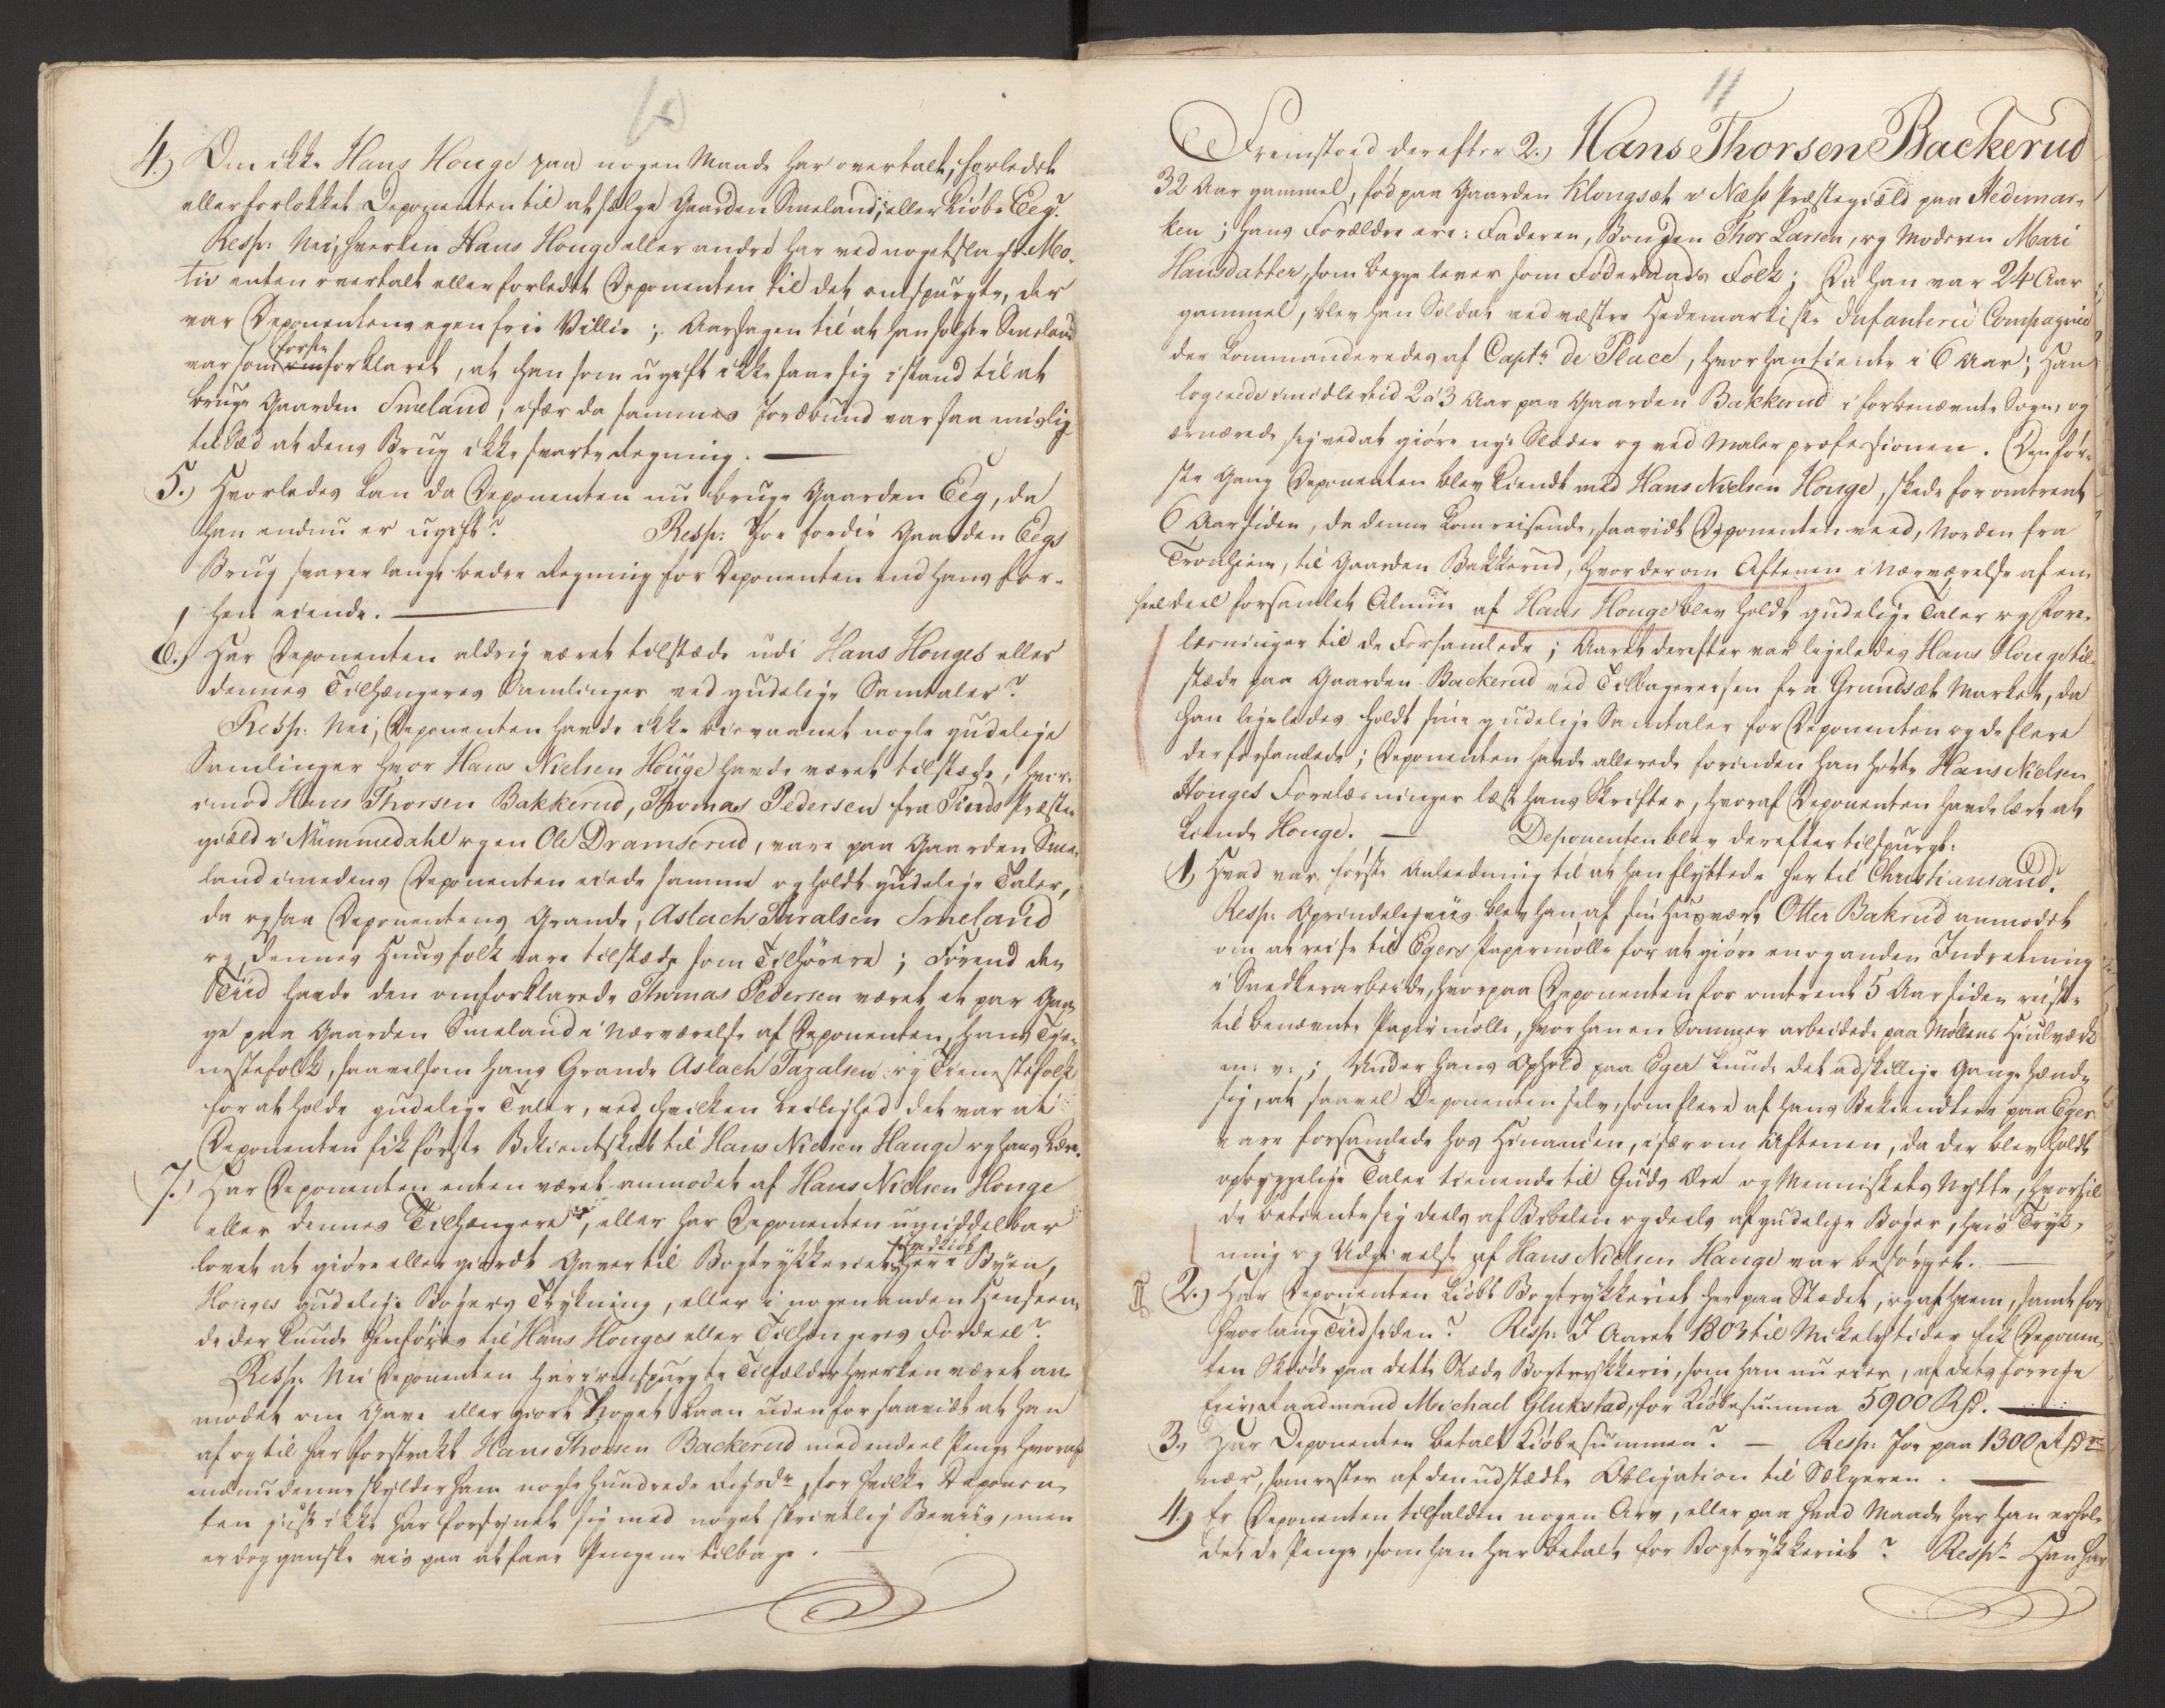 4.) Om ikke Hans Houge paa nogen Maade har overtalt, forledet
eller forlokket Deponenten til at sælge Gaarden Smeland, eller kiöbe Eeg?
Resp: Nei, hverken Hans Houge eller andre har ved nogetslags Mo-
tiv enten overtalt eller forledt Deponenten til det omspurgte, der
var Deponentens egen frie Villie; Aarsagen til at han solgte Smeland
var som forhen forklaret, at han som ugift ikke saae sig istand til at
bruge Gaarden Smeland; især da sammes Jordbund var saa mislig
til Sæd at dens Brug ikke svarte Regning. —
5.) Hvorledes kan da Deponenten nu bruge Gaarden Eeg, da
han endnu er ugift? Resp: Jo fordie Gaarden Eegs
Brug svarer langt bedre Regning for Deponenten end hans for-
hen eiende. —
6.) Har Deponenten aldrig været tilstæde udi Hans Houges eller
dennes Tilhængeres Samlinger ved gudelige Samtaler?
Resp: Nei, Deponenten havde ikke bievaanet nogle gudelige
Samlinger hvor Hans Nielsen Houge havde været tilstæde, hvor-
imod Hans Thorsen Bakkerud, Thomas Pedersen fra Tinds Præste-
gield i Nummedahl og en Ole Dramserud, vare paa Gaarden Sme-
land imedens Deponenten eiede samme og holdt gudelige Taler,
da ogsaa Deponentens Grande, Aslach Taralsen Smeland
og dennes Huusfolk vare tilstæde som Tilhörere; Förend den
Tiid havde den omforklarede Thomas Pedersen været et par Gan-
ge paa Gaarden Smeland i Nærværelse af Deponenten, hans Tje-
nestefolk, saavelsom hans Grande Aslach Tazalsen og Tienestefolk
for at holde gudelige Taler, ved hvilken Leilighed det var at
Deponenten fik förste Bekientskab til Hans Nielsen Hauge og hans Lære.
7.) Har Deponenten enten været anmodet af Hans Nielsen Houge
eller dennes Tilhængere, eller har Deponenten umiddelbar
lovet at giöre eller giordt Gaver til Bogtrykkeriets Indkiöb her i Byen,
Houges gudelige Bögers Trykning, eller i nogen anden Henseen-
de der kunde henföres til Hans Houges eller Tilhængeres Fordeel?
Resp: Nei Deponenten har i omspurgte Tilfælde hverken været an-
modet om Gave eller giort noget Laan uden forsaavidt at han
af og til har forstrakt Hans Thorsen Backerud med endeel Penge hvoraf
endnu denne skylder ham nogle hundrede Rigsdr, for hvilke Deponen-
ten just ikke har forsynet sig med noget skrivtlig Beviis, men
er dog ganske vis paa at faae Pengene tilbage.
11
Fremstoed derefter 2.) Hans Thorsen Backerud
32 Aar gammel, föd paa Gaarden Klongsæt i Næss Præstegield paa Hedemar-
ken; hans Forældre ere: Faderen, Bonden Thor Larsen, og Moderen Mari
Hansdatter, som begge lever som Föderaads Folk; Da han var 24 Aar
gammel, blev han Soldat ved vestre Hedemarkiske Infanterie Compagnie
der commanderedes af Captn de Place, hvor han tiente i 6 Aar; Han
logerede imidlertid 2 a 3 Aar paa Gaarden Bakkerud i forbenævnte Sogn, og
ernærede sig ved at giöre nye Slæder og ved Maler professionen. Den för-
ste Gang Deponenten blev kiendt med Hans Nielsen Houge, skede for omtrent
6 Aar siden, da denne kom reisende, saavidt Deponenten veed, Norden fra
Tronhiem, til Gaarden Bakkerud, hvor der om Aftenen i Nærværelse af en
heel deel forsamlet Almue af Hans Houge blev holdt gudelige Taler og Fore-
læsninger til de Forsamlede; Aaret derefter var ligeledes Hans Houge til-
stæde paa Gaarden Backerud ved Tilbagereisen fra Grundsæt Market, da
han ligeledes holdt sine gudelige Samtaler for Deponenten og de flere
der forsamlede; Deponenten havde allerede forinden han hörte Hans Nielsen
Houges Forelæsninger læst hans Skrifter, hvoraf Deponenten havde lært at
kiende Houge. — Deponenten blev derefter tilspurgt:
1.) Hvad var förste Anledning til at han flyttede her til Christiansand?
Resp: Oprindeligviis blev han af sin Huusvært Otter Bakrud anmodet
om at reise til Egers Papirmölle for at giöre en og anden Indretning
i Snedkerarbeide, hvorpaa Deponenten for omtrent 5 Aar siden reiste
til benævnte Papirmölle, hvor han en Sommer arbeidede paa Möllens Hiulværk
m: v:; Under hans Ophold paa Eger kunde det adskillige Gange hænde
sig, at saavel Deponenten selv, som flere af hans Bekiendtere paa Eger
vare forsamlede hos hinanden, især om Aftenen, da der blev holdt
opbyggelige Taler tienende til Guds Ære og Menniskets Nytte, hvortil
de betiente sig deels af Bibelen og deels af gudelige Böger, hvis Tryk-
ning og Udgivelse af Hans Nielsen Hauge var besörget. —
2.) Har Deponenten kiöbt Bogtrykkeriet her paa Stædet, og af hvem, samt for
hvorlang Tiid siden? Resp: I Aaret 1803 til Mikelstider fik Deponen-
ten Skiöde paa dette Stæds Bogtrykkerie, som han nu eier, af dets forrige
Eier, Raadmand Michael Glukstad, for Kiöbesumma 5900 Rd. —
3.) Har Deponenten betalt Kiöbesummen? — Resp: Jo paa 1300 Rdr
nær, som rester af den udstædte Obligation til Sælgeren. —
4.) Er Deponenten tilfalden nogen Arv, eller paa hvad Maade har han erhol-
det de Penge, som han har betalt for Bogtrykkeriet? Resp: Han har